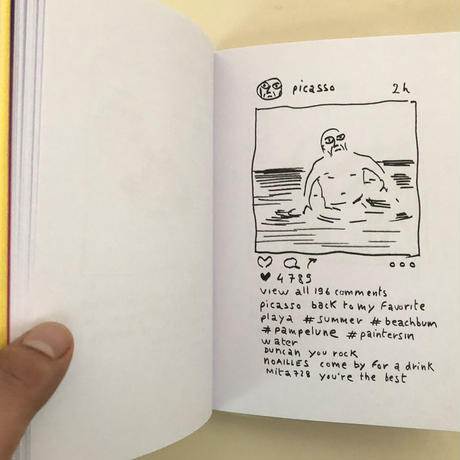 picasso 2h
4789
view all 196 comments
picasso back to my favorite
playa #summer #beachbum
#pampelune #paintersin
water
Duncan you rock
noAilles come by for a drink
Mita728 you're the best